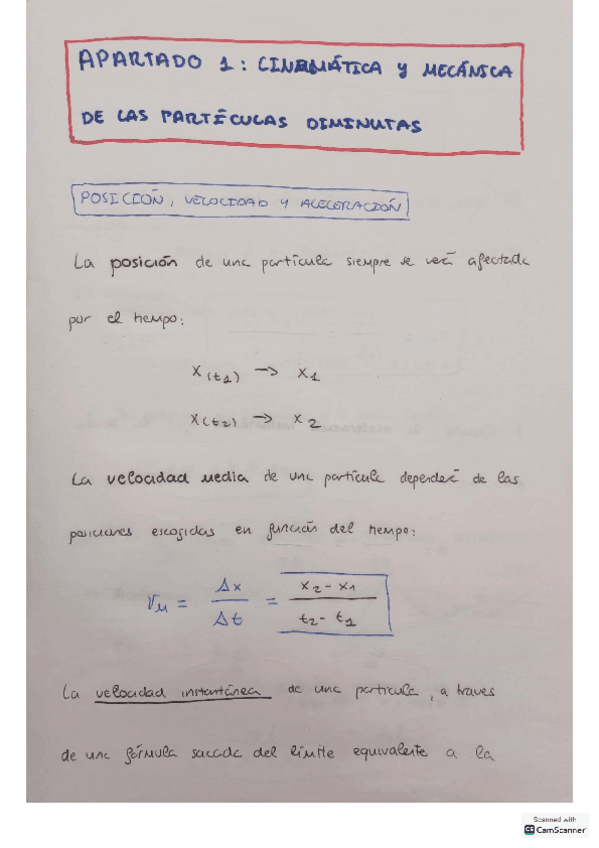 APARTADO 1: CINEMÁTICA Y MECÁNICA
DE LAS PARTÍCULAS DIMINUTAS
POSICIÓN, VELOCIDAD Y ACELERACIÓN
La posición de una partícula siempre se verá afectada
por el tiempo:
X(t1) -> X1
X(t2) -> X2
La velocidad media de una partícula dependerá de las
posiciones escogidas en función del tiempo:
VM = Δx / Δt = x2 - x1 / t2 - t1
La velocidad instantánea de una partícula, a traves
de una fórmula sacada del límite equivalente a la
Scanned with
CS CamScanner